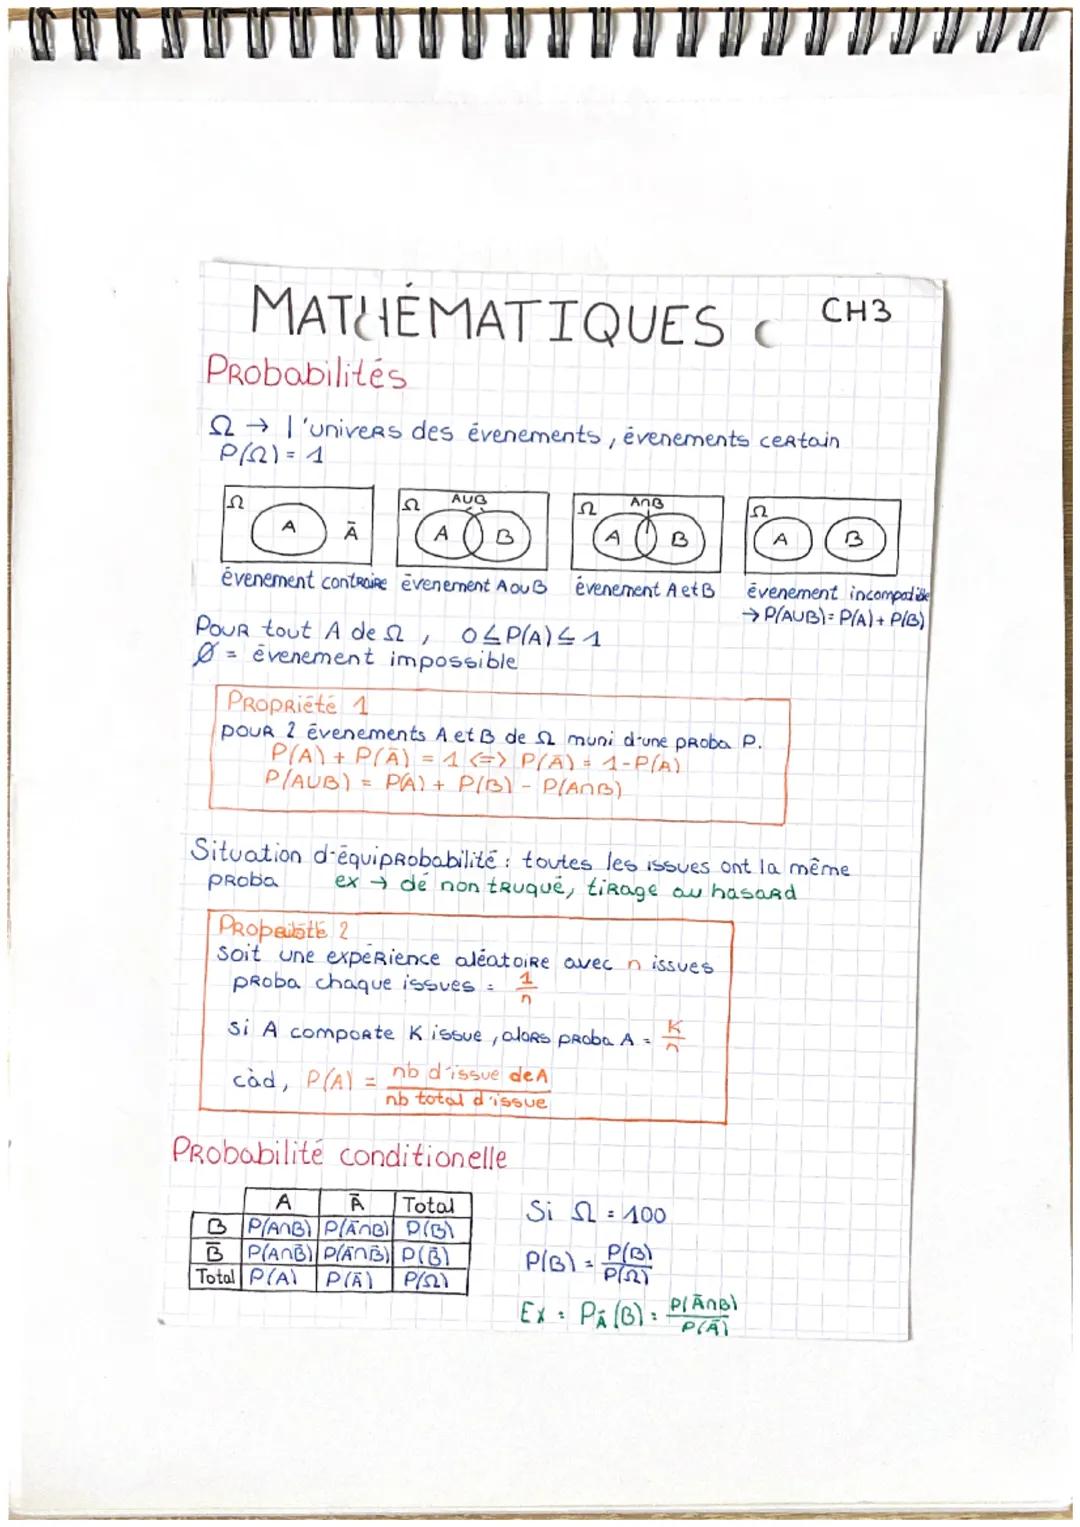 MATHÉMATIQUES CH3
Probabilités
Ω → l'univers des évenements, évenements certain
P(Ω) = 1
Ω A Ā
Ω A∪B A B
Ω A∩B A B
Ω A B
évenement contraire évenement A ou B évenement A et B évenement incompatible
→ P(A∪B) = P(A) + P(B)
Pour tout A de Ω, 0 ≤ P(A) ≤ 1
Ø = évenement impossible
Propriété 1
pour 2 évenements A et B de Ω muni d'une proba P.
P(A) + P(Ā) = 1 <=> P(Ā) = 1 - P(A)
P(A∪B) = P(A) + P(B) - P(A∩B)
Situation d'équiprobabilité : toutes les issues ont la même
proba ex → dé non truqué, tirage au hasard
2
soit une expérience aléatoire avec n issues
proba chaque issues = 1/n
si A comporte K issue, alors proba A = K/n
càd, P(A) = nb d'issue de A / nb total d'issue
Probabilité conditionelle
A Ā Total
B P(A∩B) P(Ā∩B) P(B)
B̄ P(A∩B̄) P(Ā∩B̄) P(B̄)
Total P(A) P(Ā) P(Ω)
Si Ω = 100
P(B) = P(B)/P(Ω)
Ex : PĀ(B) = P(Ā∩B)/P(Ā)